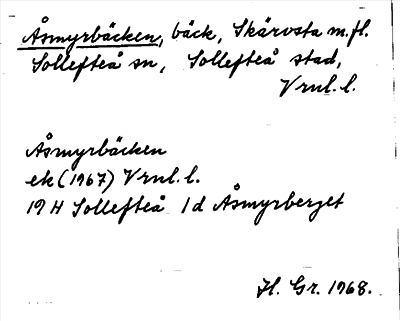 Åsmyrbäcken, bäck, Skärvsta m.fl.
Sollefteå sn, Sollefteå stad,
Vrnl. l.
Åsmyrbäcken
ek (1967) Vrnl. l.
19 H Sollefteå 1 d Åsmyrberget
H. Gr. 1968.